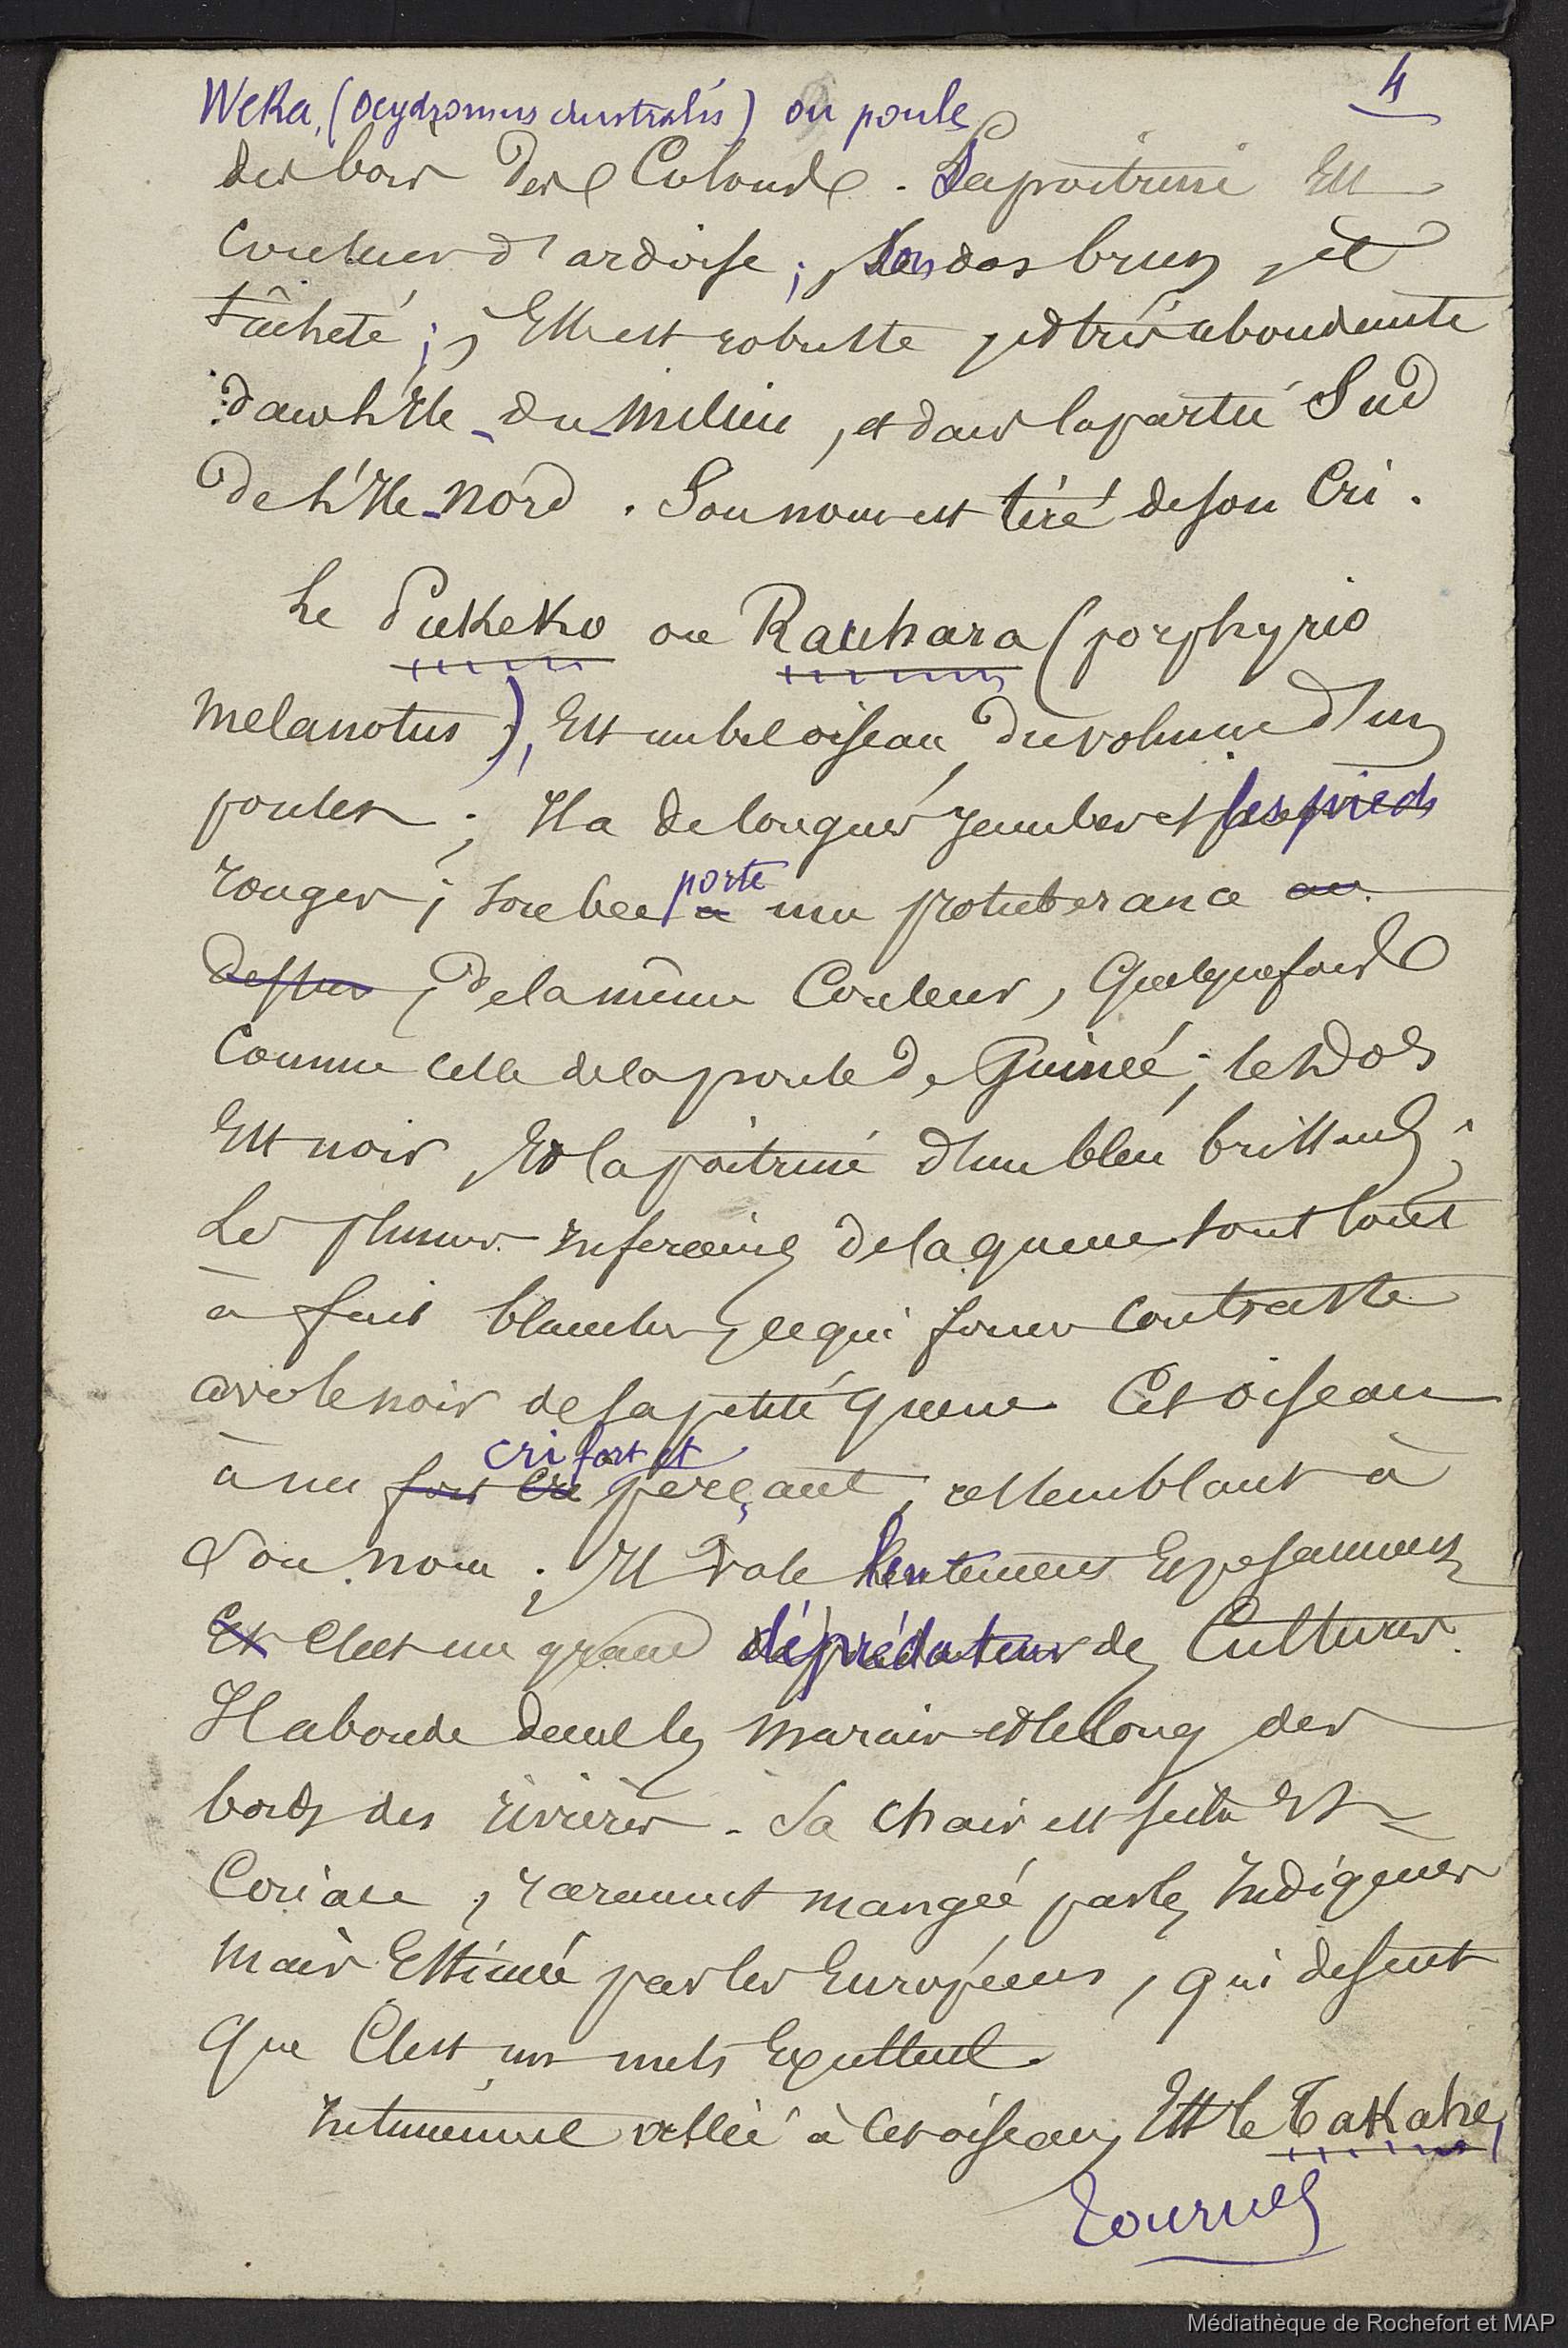 4
Weka, (Ocydromus australis) ou poule
des bois des Colons. Sa poitrine Est
couleur d'ardoise ; son dos brun et
tâcheté ; Elle est robuste et très abondante
dans L'Ile-du-Milieu, et dans la partie Sud
De L'Ile-Nord. Son nom est tiré de son Cri.
Le Pukeko ou Rauhara (porphyrio
melanotus), Est un bel oiseau du volume d'un
poulet ; Il a de longues jambes et les pieds
rouges ; son bec a porte une protuberance au
dessus, De la même Couleur, Quelquefois
Comme celle de la poule De Guinée ; le Dos
Est noir, Et la poitrine d'un bleu brillant ;
Les plumes Inferieures de la queue sont tout
à fait blanches, ce qui forme Contraste
avec le noir de sa petite queue. Cet oiseau
à un fort cri cri fort et perçant, ressemblant à
Son nom ; Il vole lentement Et pesamment
Et C'est un grand déprédateur de Cultures.
Il abonde dans les marais et le long des
bords des rivières. Sa chair est sèche Et
Coriace, rarement mangée par les Indigenes
Mais Estimée par les Européens, qui disent
Que C'est un mets Excellent.
Intimement allié à Cet oiseau, Est le Takahe,
Tournez
Médiathèque de Rochefort et MAP